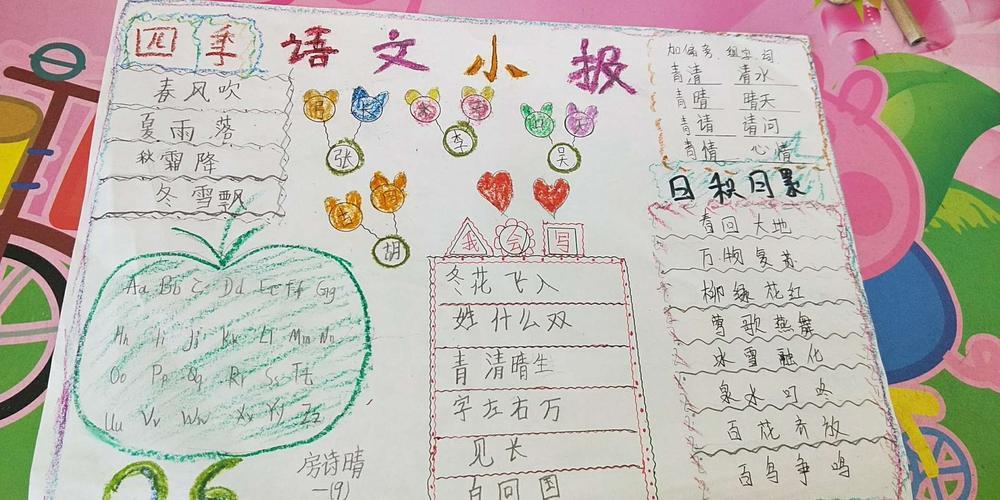 四季
语文小报
春风吹
夏雨落
秋霜降
冬雪飘
弓长
张
木子
李
口天
吴
古月
胡
Aa Bb Cc Dd Ee Ff Gg
Hh Ii Jj Kk Ll Mm Nn
Oo Pp Qq Rr Ss Tt
Uu Vv Ww Xx Yy Zz
房诗晴
一(9)
我会写
冬花飞入
姓什么双
青清晴生
字左右万
见长
白回国
青清 清水
青晴 晴天
青请 请问
青情 心情
日积月累
春回大地
万物复苏
柳绿花红
莺歌燕舞
冰雪融化
泉水叮咚
百花齐放
百鸟争鸣